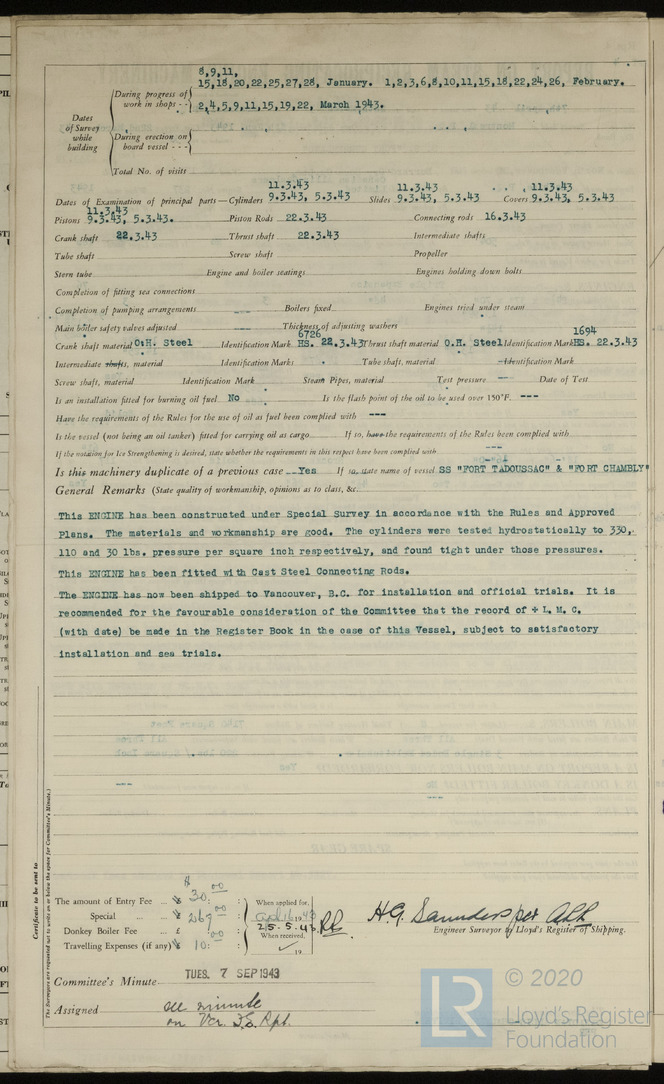 8,9,11,
15,18,20,22,25,27,28, January. 1,2,3,6,8,10,11,15,18,22,24,26, February.
During progress of work in shops - -
2,4,5,9,11,15,19,22, March 1943.
Dates of Survey while building
During erection on board vessel - - -
Total No. of visits
11.3.43 11.3.43 11.3.43
Dates of Examination of principal parts—Cylinders 9.3.43, 5.3.43 Slides 9.3.43, 5.3.43 Covers 9.3.43, 5.3.43
11.3.43
Pistons 9.3.43, 5.3.43. Piston Rods 22.3.43 Connecting rods 16.3.43
Crank shaft 22.3.43 Thrust shaft 22.3.43 Intermediate shafts
Tube shaft Screw shaft Propeller
Stern tube Engine and boiler seatings Engines holding down bolts
Completion of fitting sea connections
Completion of pumping arrangements Boilers fixed Engines tried under steam
Main boiler safety valves adjusted Thickness of adjusting washers
6726 1694
Crank shaft material O.H. Steel Identification Mark HS. 22.3.43 Thrust shaft material O.H. Steel Identification Mark HS. 22.3.43
Intermediate shafts, material Identification Marks Tube shaft, material Identification Mark
Screw shaft, material Identification Mark Steam Pipes, material Test pressure Date of Test
Is an installation fitted for burning oil fuel No Is the flash point of the oil to be used over 150°F. ---
Have the requirements of the Rules for the use of oil as fuel been complied with ---
Is the vessel (not being an oil tanker) fitted for carrying oil as cargo If so, have the requirements of the Rules been complied with
If the notation for Ice Strengthening is desired, state whether the requirements in this respect have been complied with ---
Is this machinery duplicate of a previous case Yes If so, state name of vessel SS "FORT TADOUSSAC" & "FORT CHAMBLY"
General Remarks (State quality of workmanship, opinions as to class, &c.
This ENGINE has been constructed under Special Survey in accordance with the Rules and Approved
Plans. The materials and workmanship are good. The cylinders were tested hydrostatically to 330,
110 and 30 lbs. pressure per square inch respectively, and found tight under those pressures.
This ENGINE has been fitted with Cast Steel Connecting Rods.
The ENGINE has now been shipped to Vancouver, B.C. for installation and official trials. It is
recommended for the favourable consideration of the Committee that the record of + L. M. C.
(with date) be made in the Register Book in the case of this Vessel, subject to satisfactory
installation and sea trials.
Certificate to be sent to
The Surveyors are requested not to write on or below the space for Committee's Minute.)
The amount of Entry Fee ... $ 30:00 When applied for,
Special ... ... 267:00 April 16 1943
Donkey Boiler Fee ... £ 25.5.43
When received,
Travelling Expenses (if any) 10:00 19
H.G. Saunders per
Engineer Surveyor to Lloyd's Register of Shipping.
Committee's Minute TUES. 7 SEP 1943
Assigned see minute
on Vcr. F.E. Rpt.
© 2020
LR Lloyd's Register
Foundation